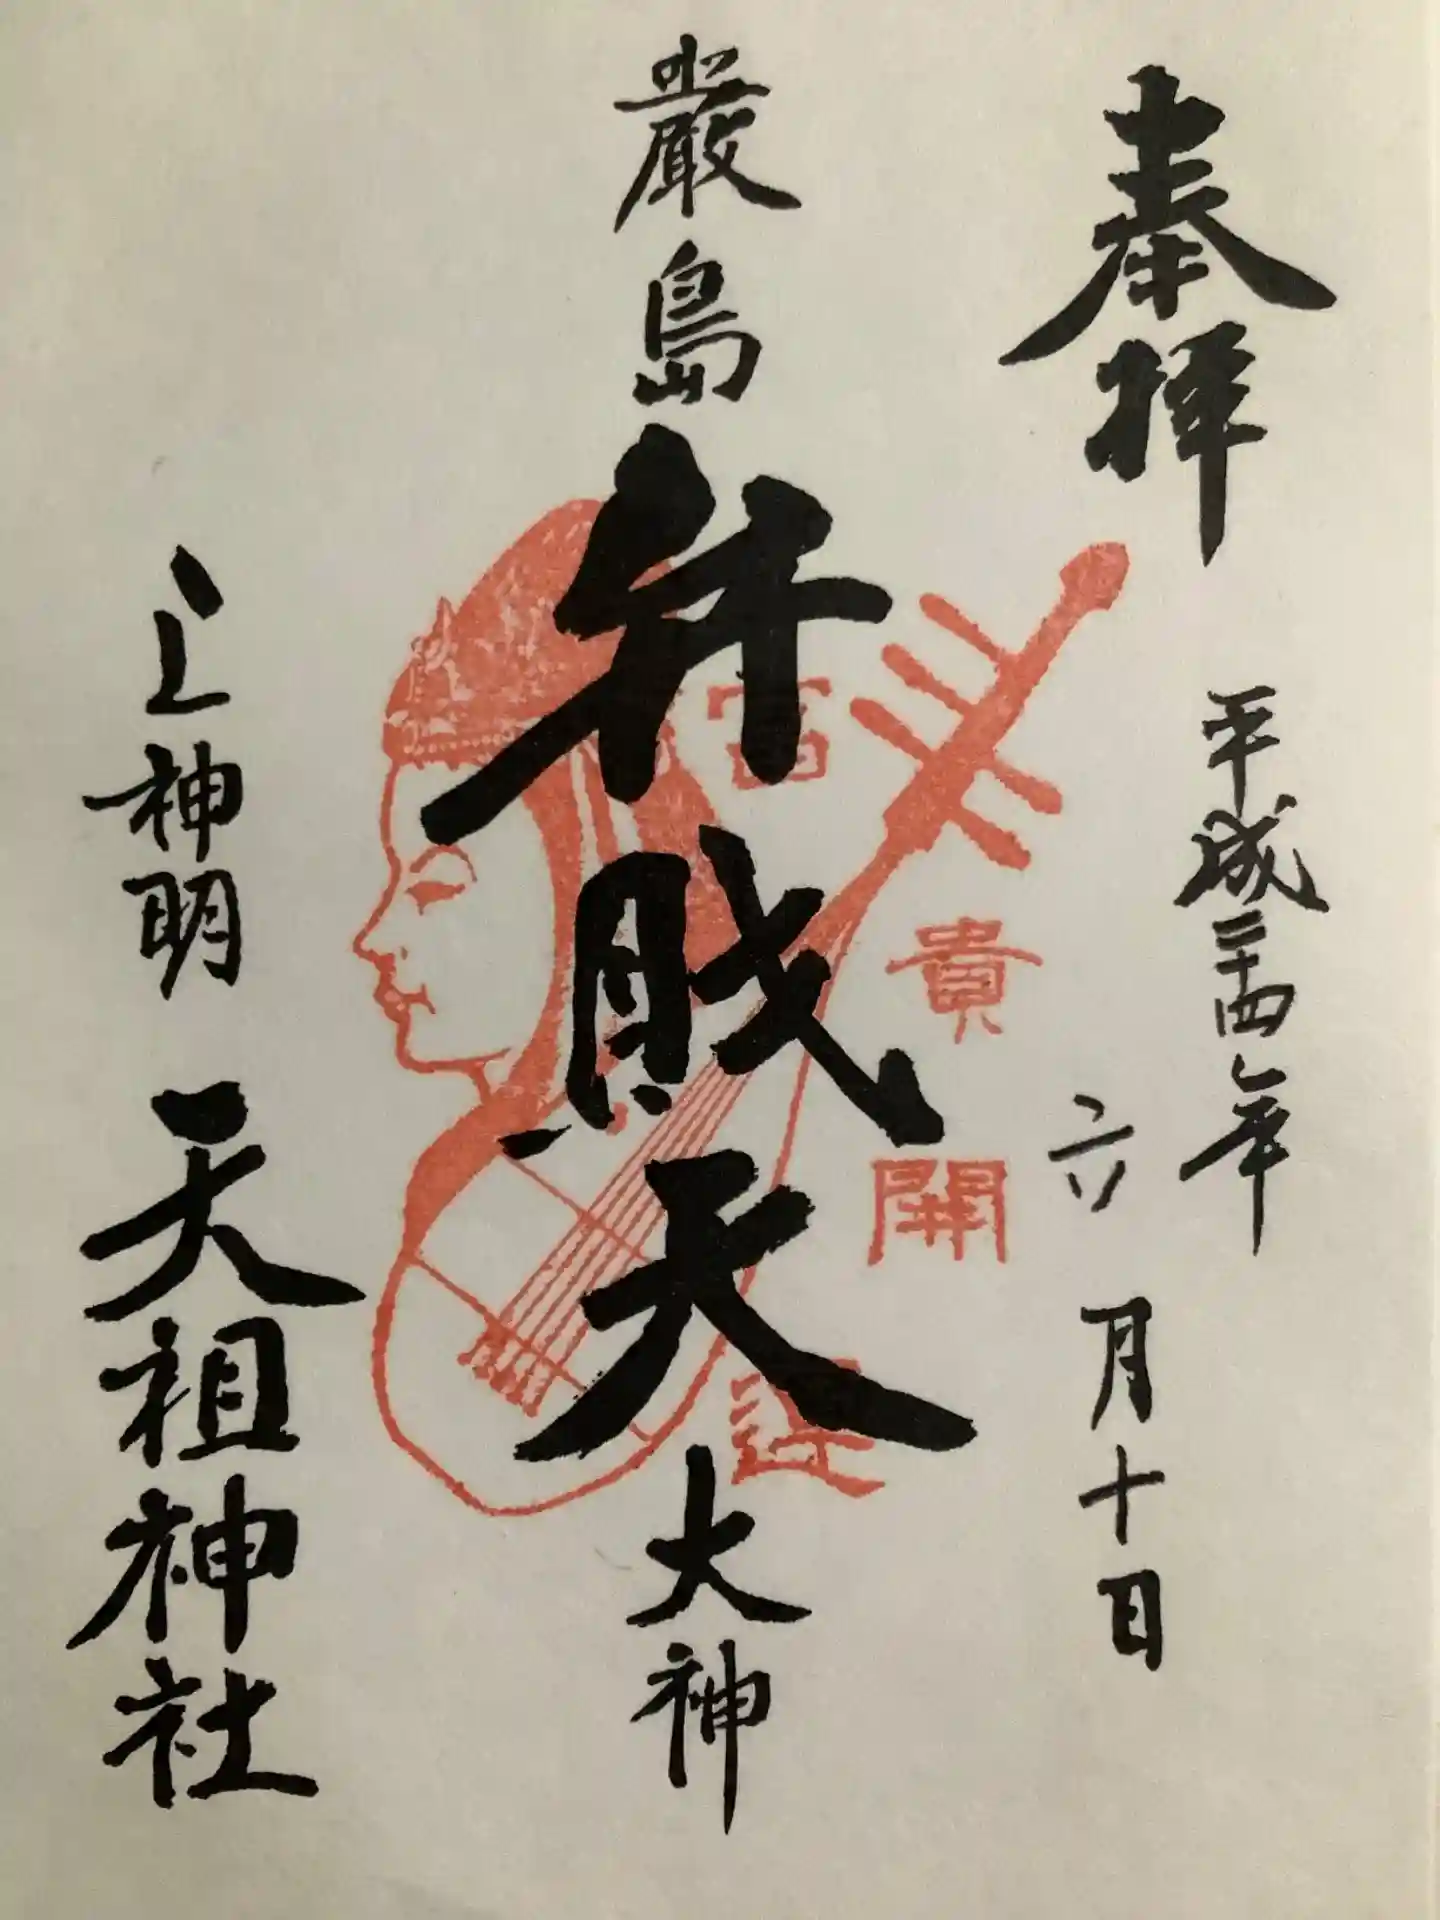 奉拝
平成二十四年
六月十日
厳島弁財天大神
富貴開運
上神明天祖神社